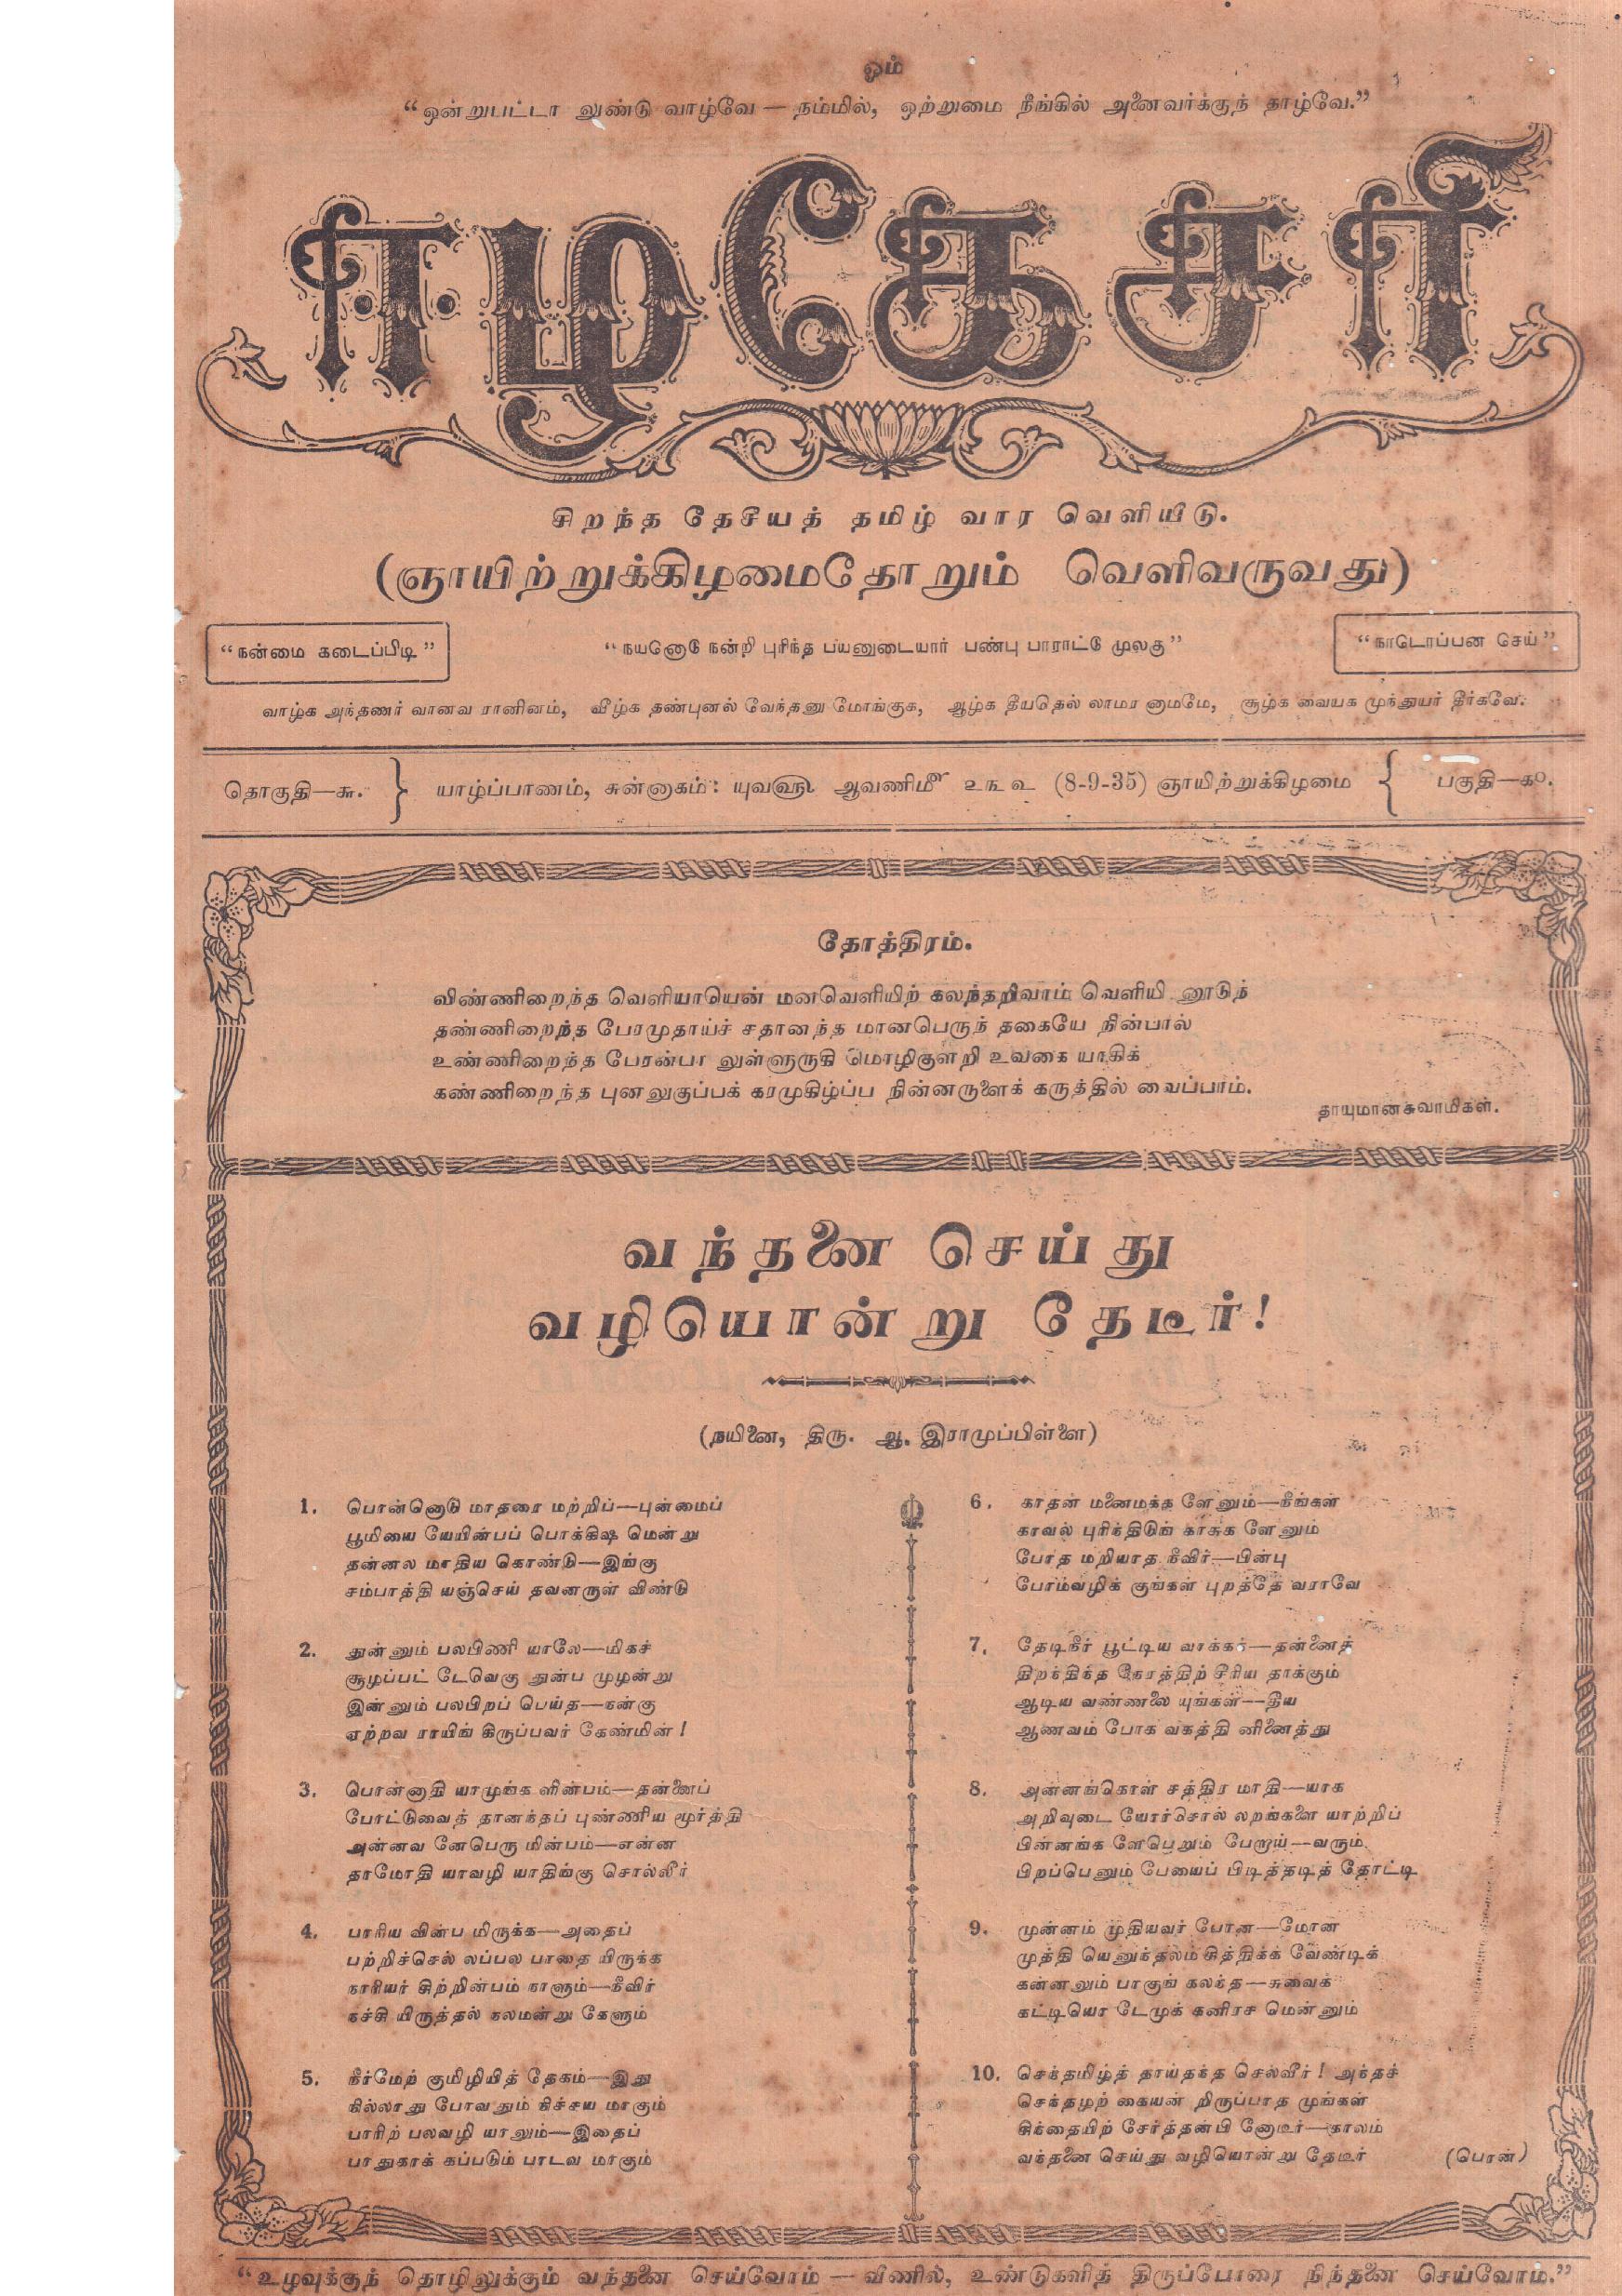 ஓம்
“ஒன்றுபட்டா லுண்டு வாழ்வே — நம்மில், ஒற்றுமை நீங்கில் அனைவர்க்குந் தாழ்வே.”
ஈழகேசரி
சிறந்த தேசீயத் தமிழ் வார வெளியீடு.
(ஞாயிற்றுக்கிழமைதோறும் வெளிவருவது)
“நன்மை கடைப்பிடி”
“நயனொடு நன்றி புரிந்த பயனுடையார் பண்பு பாராட்டு முலகு”
“நாடொப்பன செய்”
வாழ்க அந்தணர் வானவ ரானினம், வீழ்க தண்புனல் வேந்தனு மோங்குக, ஆழ்க தீயதெல் லாமர னாமமே, சூழ்க வையக முந்துயர் தீர்கவே.
தொகுதி—௬. } யாழ்ப்பாணம், சுன்னாகம்: யுவ௵ ஆவணி௴ ௨௩௳ (8-9-35) ஞாயிற்றுக்கிழமை { பகுதி—௧௦.
தோத்திரம்.
விண்ணிறைந்த வெளியாயென் மனவெளியிற் கலந்தறிவாம் வெளியி னூடுந்
தண்ணிறைந்த பேரமுதாய்ச் சதானந்த மானபெருந் தகையே நின்பால்
உண்ணிறைந்த பேரன்பா லுள்ளுருகி மொழிகுளறி உவகை யாகிக்
கண்ணிறைந்த புனலுகுப்பக் கரமுகிழ்ப்ப நின்னருளைக் கருத்தில் வைப்பாம்.
தாயுமானசுவாமிகள்.
வந்தனை செய்து
வழியொன்று தேடீர்!
(நயினை, திரு. ஆ. இராமுப்பிள்ளை)
1. பொன்னொடு மாதரை மற்றிப்—புன்மைப்
பூமியை யேயின்பப் பொக்கிஷ மென்று
தன்னல மாதிய கொண்டு—இங்கு
சம்பாத்தி யஞ்செய் தவனருள் விண்டு
2. துன்னும் பலபிணி யாலே—மிகச்
சூழப்பட் டேவெகு துன்ப முழன்று
இன்னும் பலபிறப் பெய்த—நன்கு
ஏற்றவ ராயிங் கிருப்பவர் கேண்மின்!
3. பொன்னாதி யாமுங்க ளின்பம்—தன்னைப்
போட்டுவைத் தானந்தப் புண்ணிய மூர்த்தி
அன்னவ னேபெரு மின்பம்—என்ன
தாமோதி யாவழி யாதிங்கு சொல்லீர்
4. பாரிய வின்ப மிருக்க—அதைப்
பற்றிச்செல் லப்பல பாதை யிருக்க
நாரியர் சிற்றின்பம் நாளும்—நீவிர்
நச்சி யிருத்தல் நலமன்று கேளும்
5. நீர்மேற் குமிழியித் தேகம்—இது
நில்லாது போவதும் நிச்சய மாகும்
பாரிற் பலவழி யாலும்—இதைப்
பாதுகாக் கப்படும் பாடவ மாகும்
6. காதன் மனைமக்க ளேனும்—நீங்கள்
காவல் புரிந்திடுங் காசுக ளேனும்
போத மறியாத நீவிர்—பின்பு
போம்வழிக் குங்கள் புறத்தே வராவே
7. தேடிநீர் பூட்டிய வாக்கர்—தன்னைத்
திறக்கின்ற நேரத்திற் சீரிய தாக்கும்
ஆடிய வண்ணலை யுங்கள்—தீய
ஆணவம் போக வகத்தி னினைத்து
8. அன்னங்கொள் சத்திர மாதி—யாக
அறிவுடை யோர்சொல் லறங்களை யாற்றிப்
பின்னங்க ளேபெறும் பேறாய்—வரும்
பிறப்பெனும் பேயைப் பிடித்தடித் தோட்டி
9. முன்னம் முதியவர் போன—மோன
முத்தி யெனுந்தலம் சித்திக்க வேண்டிக்
கன்னலும் பாகுங் கலந்த—சுவைக்
கட்டியொ டேமுக் கனிரச மென்னும்
10. செந்தமிழ்த் தாய்தந்த செல்வீர்! அந்தச்
செந்தழற் கையன் றிருப்பாத முங்கள்
சிந்தையிற் சேர்த்தன்பி னோடீர்—காலம்
வந்தனை செய்து வழியொன்று தேடீர் (பொன்)
“உழவுக்குந் தொழிலுக்கும் வந்தனை செய்வோம் — வீணில், உண்டுகளித் திருப்போரை நிந்தனை செய்வோம்.”